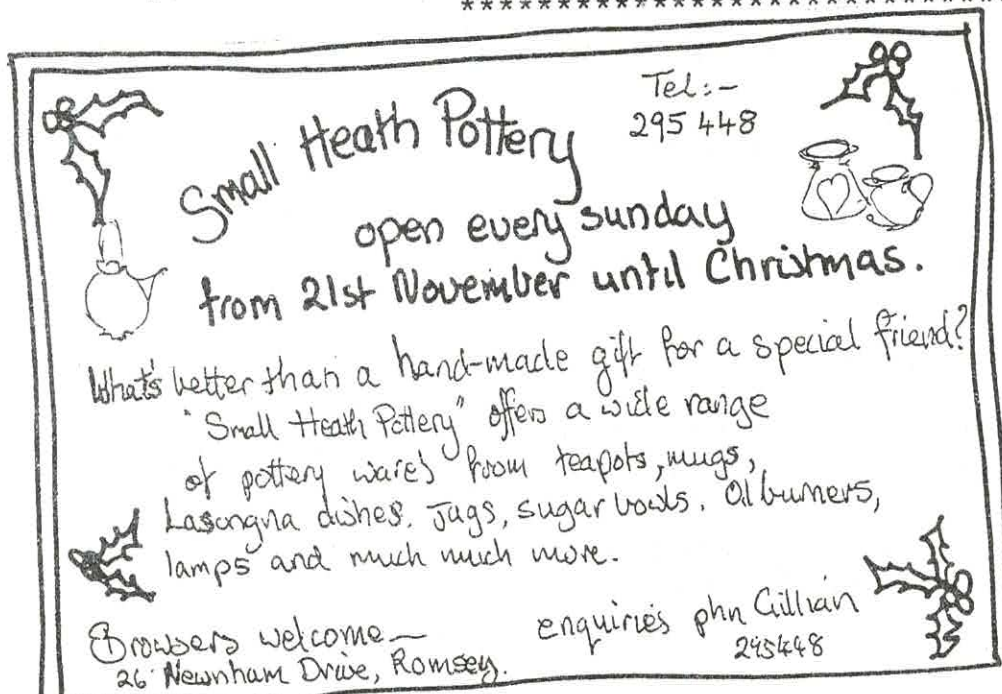 ****************************
Small Heath Pottery
Tel:-
295 448
open every sunday
from 21st November until Christmas.
What's better than a hand-made gift for a special friend?
"Small Heath Pottery" offers a wide range
of pottery wares from teapots, mugs,
Lasangna dishes. Jugs, sugar bowls. Oil burners,
lamps and much much more.
Browsers welcome—
26 Newnham Drive, Romsey.
enquiries phn Gillian
295448